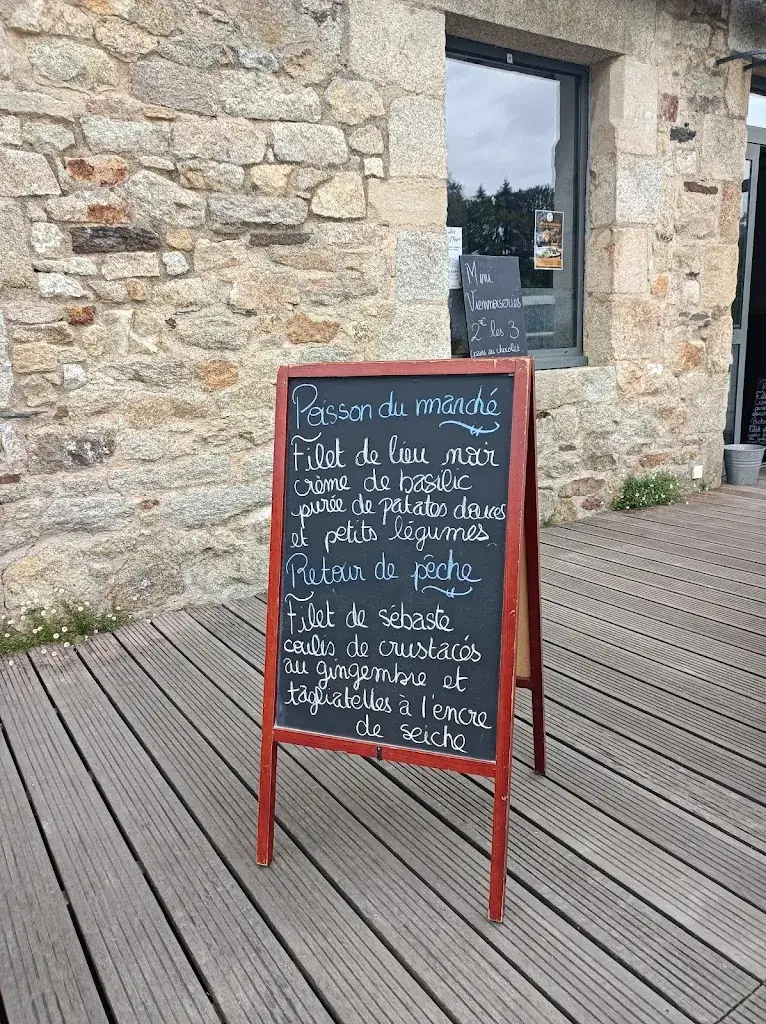 Mini
Viennoiseries
2€ les 3
pains au chocolat
Poisson du marché
Filet de lieu noir
crème de basilic
purée de patates douces
et petits légumes
Retour de pêche
Filet de sébaste
coulis de crustacés
au gingembre et
tagliatelles à l'encre
de seiche